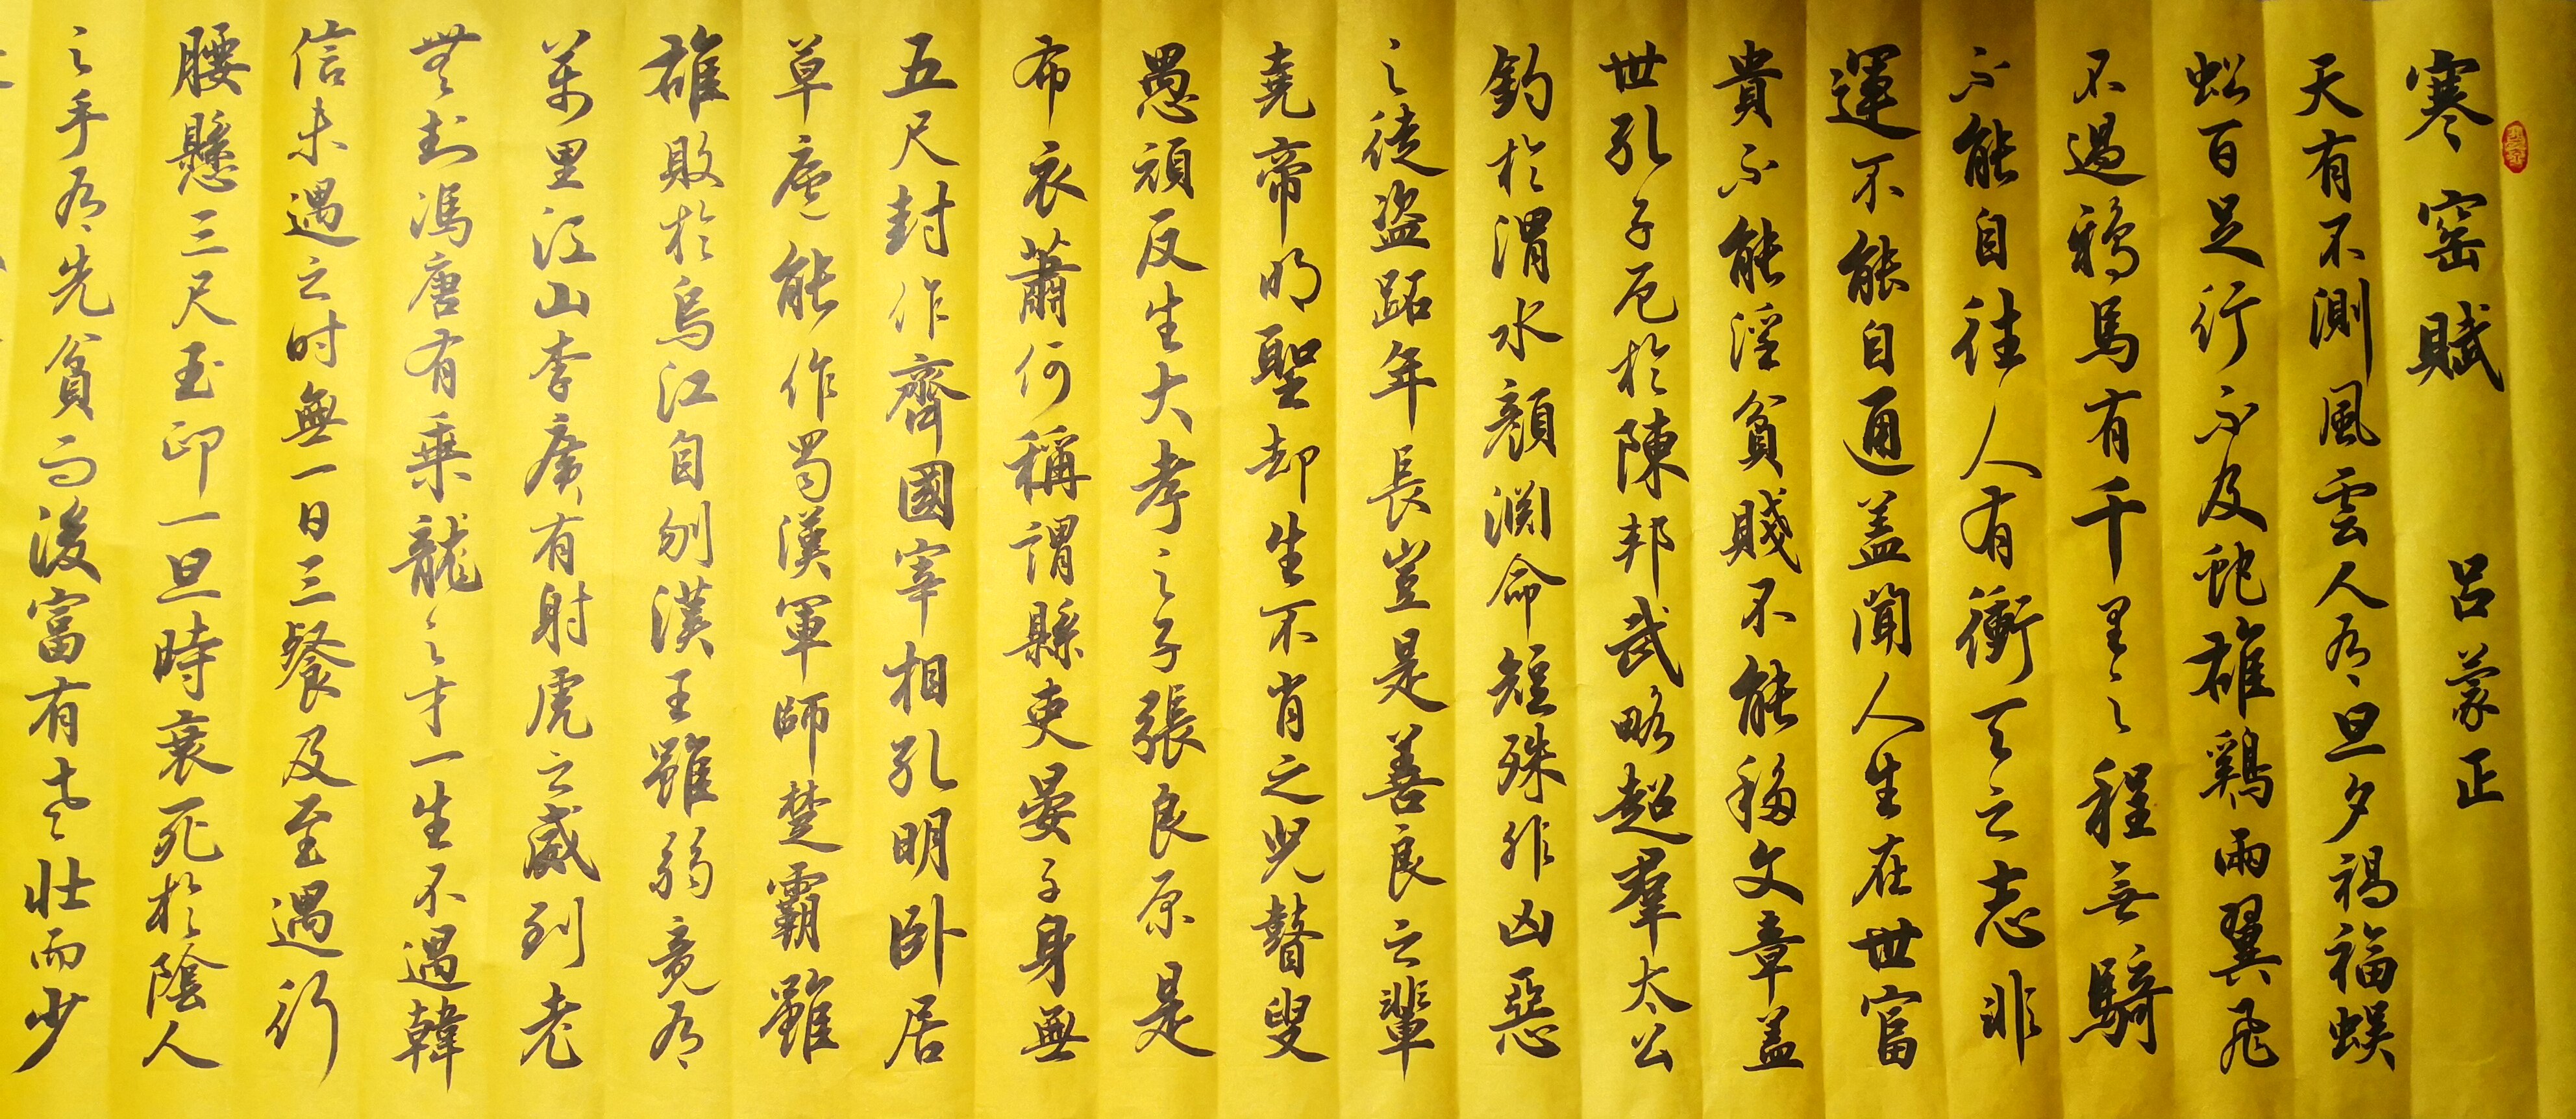 寒窑賦 呂蒙正
天有不測風雲人有旦夕禍福蜈
蚣百足行不及蛇雄鷄兩翼飛
不過鴉馬有千里之程無騎
不能自往人有衝天之志非
運不能自通盖聞人生在世富
貴不能淫貧賤不能移文章盖
世孔子厄於陳邦武略超羣太公
釣於渭水顏淵命短殊非凶惡
之徒盜跖年長豈是善良之輩
堯帝明聖却生不肖之兒瞽叟
愚頑反生大孝之子張良原是
布衣蕭何稱謂縣吏晏子身無
五尺封作齊國宰相孔明卧居
草廬能作蜀漢軍師楚霸雖
雄敗於烏江自刎漢王雖弱竟有
萬里江山李廣有射虎之威到老
無封馮唐有乘龍之才一生不遇韓
信未遇之时無一日三餐及至遇行
腰懸三尺玉印一旦時衰死於陰人
之手有先貧而後富有老壯而少